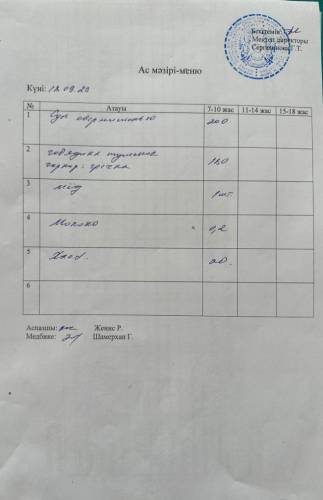 Бекітемін:
Мектеп директоры
Т.Т.
Ас мәзірі-меню
Күні: 18.09.20
№ Атауы 7-10 жас 11-14 жас 15-18 жас
1 Суп 200
2 говядина тушеная
гарнир: гречка
3 мёд 1 шт.
4 Молоко 0,2
5 Хлеб.
6
Аспазшы: Женис Р.
Медбике: Шамерхан Г.